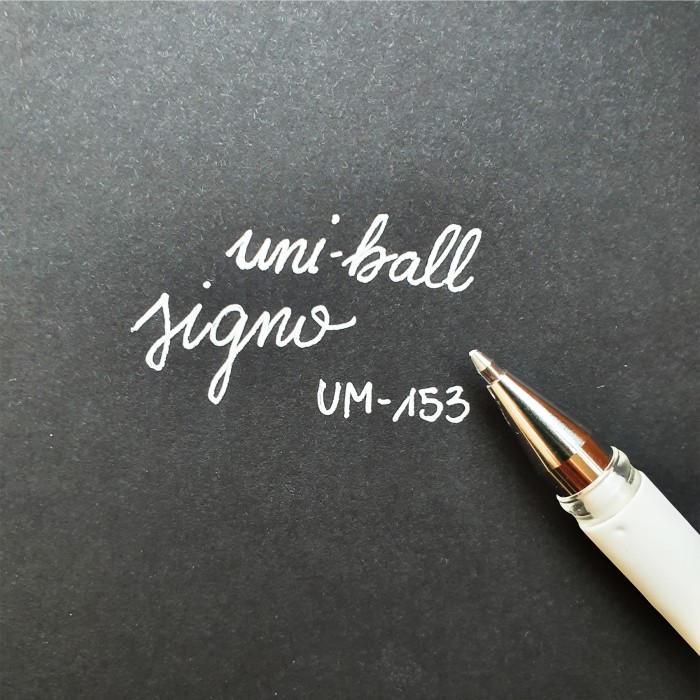 uni-ball
signo
UM-153